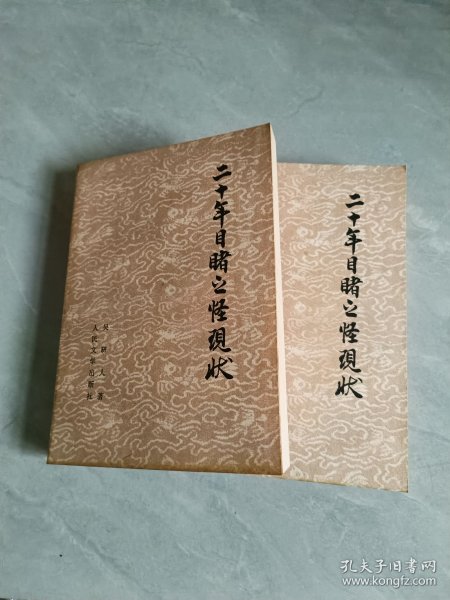 二十年目睹之怪现状
吴研人著
人民文学出版社
二十年目睹之怪现状
孔夫子旧书网
www.kongfz.com